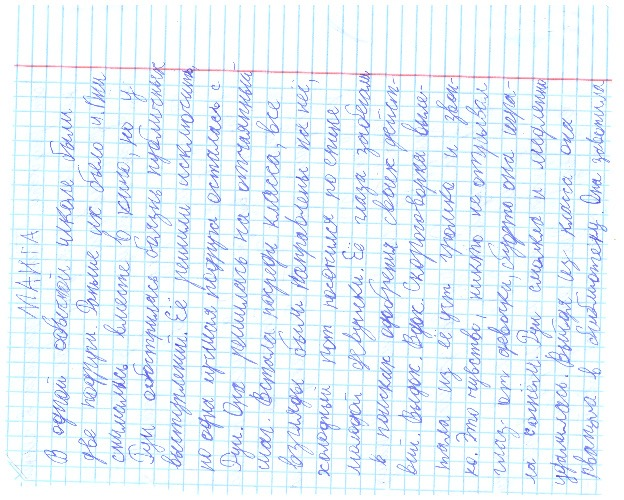 МАНГА
В одной советской школе были
две подруги. Раньше их было и Рин
снимались вместе в кино, но у
Гуи обострилась боязнь публичных
выступлений. Её решили исключить,
но одна лучшая подруга осталась с
Гуи. Она решилась на отчаянный
шаг. Встала посреди класса, все
взгляды были направлены на неё,
холодный пот посеялся по спине
молодой девушки. Её глаза забегали
в поисках одобрения своих дейст-
вий. Выдох. Вдох. Скороговорка выле-
тала из её уст громко и звон-
ко. Это чувство, никто не отрывал
глаз от девочки, будто она чита-
ла сонлей. Гуи смолкла и медленно
удалилась. Выйдя из класса она
рванула в библиотеку. Она завопила